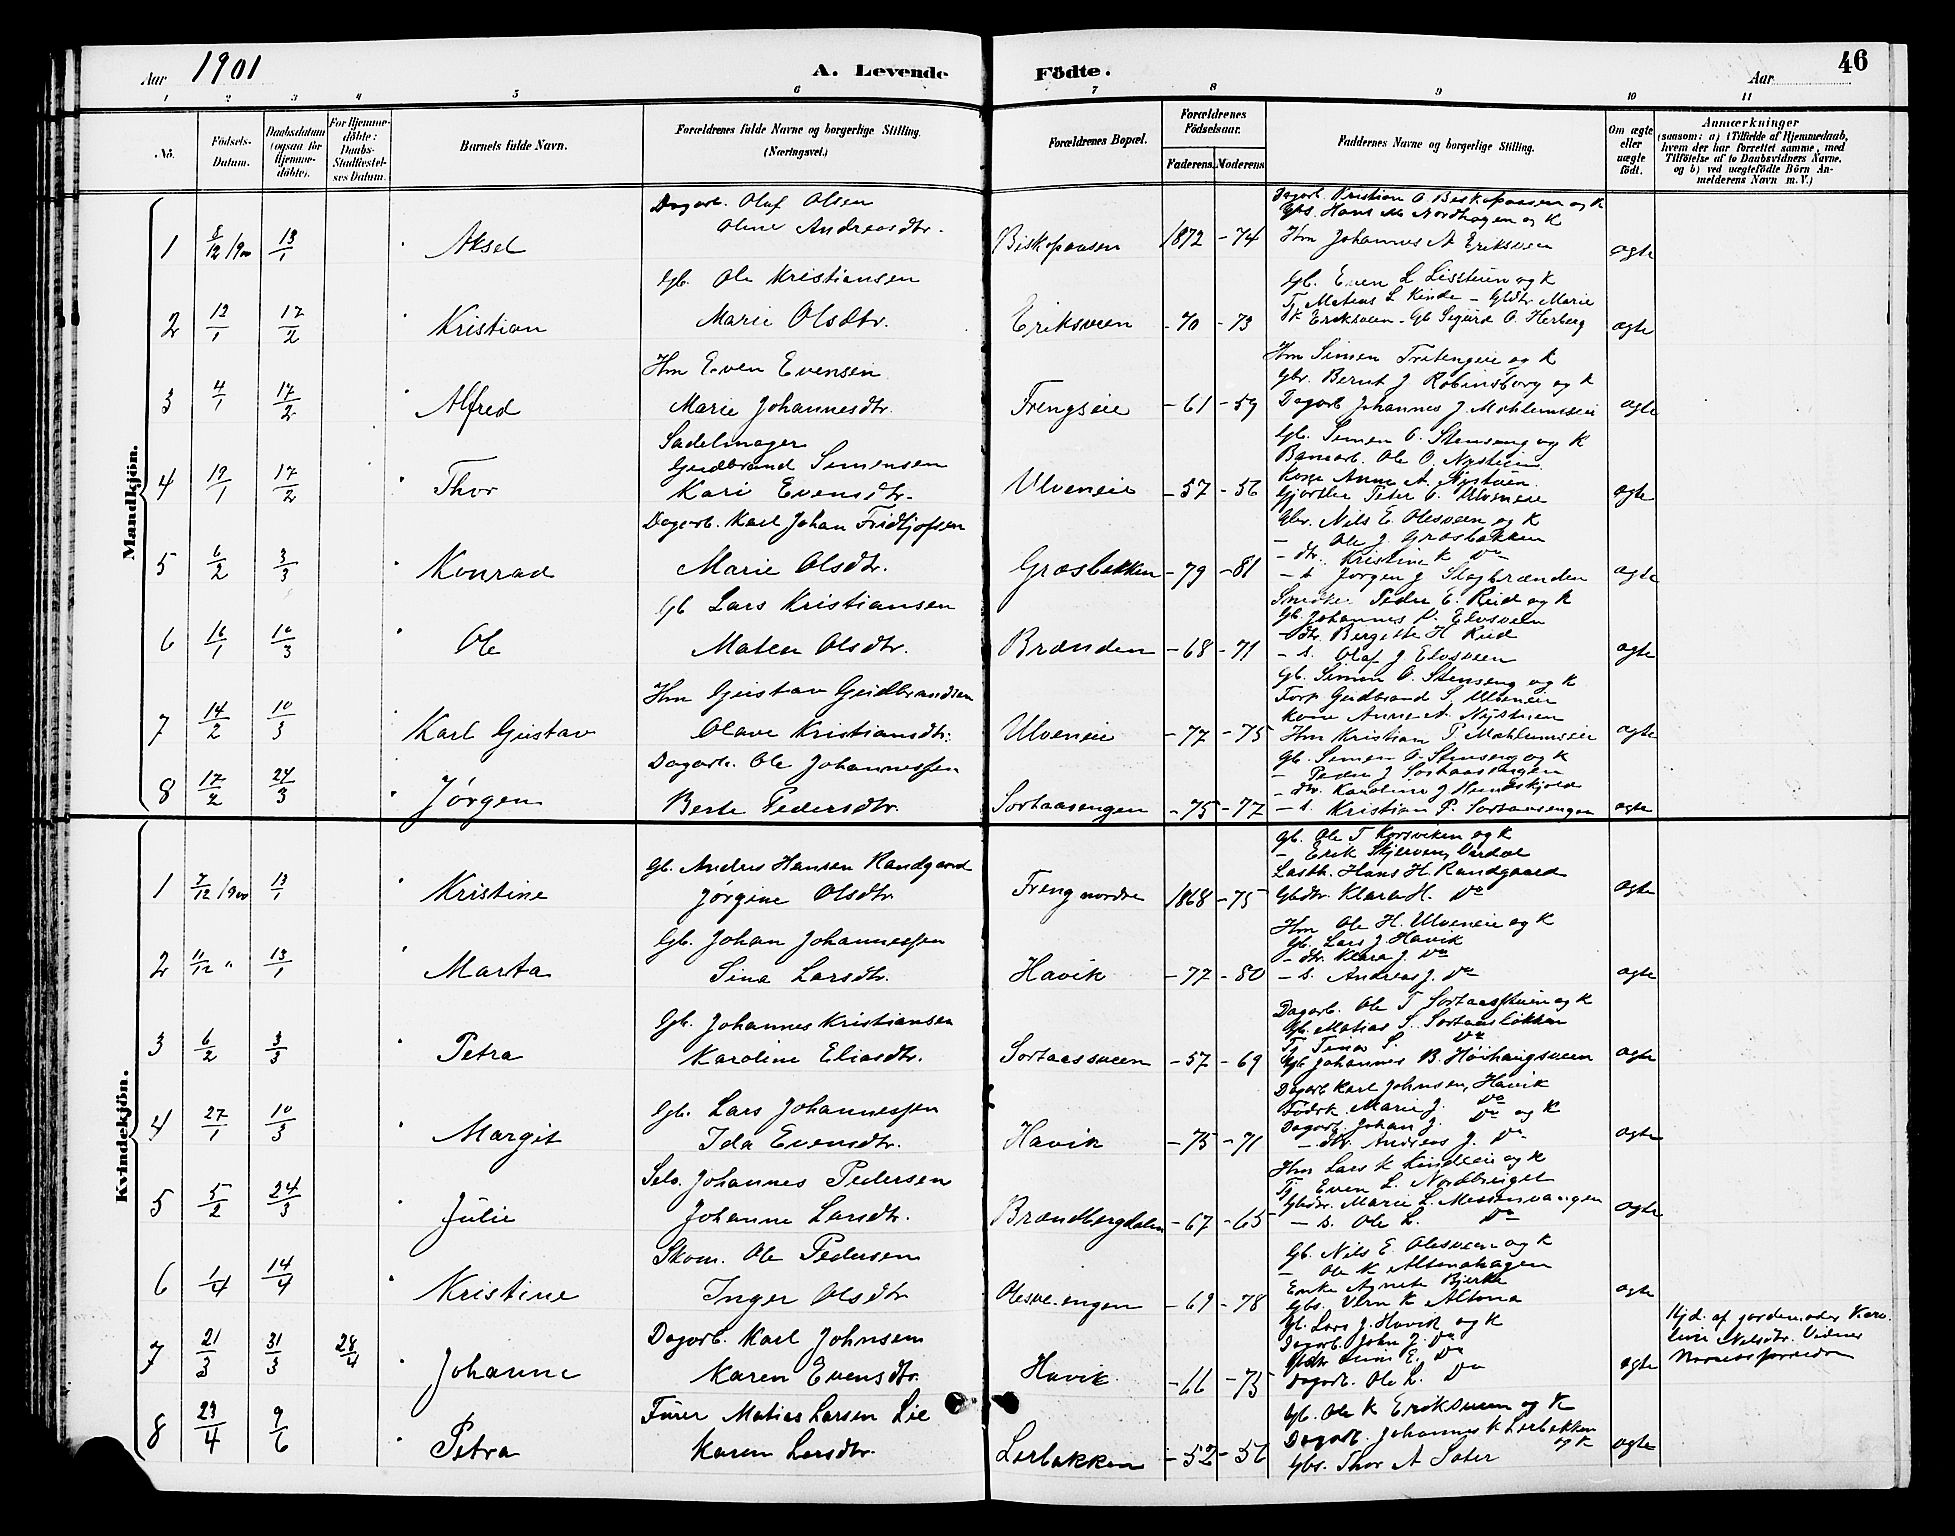 Aar 1901
A. Levende Födte.
Aar
46
1 2 3 4 5 6 7 8 9 10 11
No.
Födsels-Datum.
Daabsdatum (ogsaa för Hjemme-döbte).
For Hjemme-döbte: Daabs-Stadfæstel-ses Datum.
Barnets fulde Navn.
Forældrenes fulde Navne og borgerlige Stilling. (Næringsvei.)
Forældrenes Bopæl.
Forældrenes Födselsaar.
Faderens. Moderens.
Faddernes Navne og borgerlige Stilling.
Om ægte eller uægte födt.
Anmærkninger
(saasom: a) i Tilfælde af Hjemmedaab, hvem der har forrettet samme, med Tilföielse af to Daabsvidners Navne, og b) ved uægtefödte Börn An-melderens Navn m. V.)
Mandkjön.
1 8/12/900 13/1 Aksel
Dagarb. Oluf Olsen
Oline Andreasdtr.
Biskopaasen 1872 -74
Dagarb. Kristian O Biskopaasen og K
Gbs. Hans M Nordhagen og K
Hm Johannes A Eriksveen
ægte
2 12/1 17/2 Kristian
Gb. Ole Kristiansen
Marie Olsdtr.
Eriksveen -70 -73
Gb. Even L Listuen og K
Tj. Matias L Kinde - Gbdtr Marie
K Eriksveen - Gb Sigurd O. Herberg
ægte
3 4/1 17/2 Alfred
Hm Even Evensen
Marie Johannesdtr.
Frengseie -61 -59
Hm Simen Fretengeie og K
Gbr. Bernt J Robinsborg og K
Dagarb Johannes J. Mæhlumseie
ægte
4 19/1 17/2 Thor
Sadelmager
Gudbrand Simensen
Kari Evensdtr.
Ulveneie -57 -56
Gb. Simen O. Stenseng og K
Banearb. Ole O. Nystuen
Kone Anne A. Nystuen.
Gjørtler Peter O. Ulveneie
ægte
5 6/2 3/3 Konrad
Dagarb. Karl Johan Fridtjofsen
Marie Olsdtr.
Græsbakken -79 -81
Gbr. Nils E. Olesveen og K
- Ole J. Græsbakken
- dtr. Kristine K Do
- s Jørgen J Slagbrænden
ægte
6 16/1 10/3 Ole
Gb Lars Kristiansen
Maten Olsdtr.
Brænden -68 -71
Smedm. Peder E. Rud og K
Gb. Johannes P. Elvsveen
- dtr. Bergitte H Rud
- s. Olaf J Elvsveen
ægte
7 14/2 10/3 Karl Gustav
Hm Gustav Gudbrandsen
Olave Kristiansdtr.
Ulveneie -77 -75
Gb. Simen O. Stenseng og K
Forp Gudbrand S. Ulveneie
Kone Anne A. Nystuen
Hm Kristian P Mæhlumseie
ægte
8 17/2 24/3 Jørgen
Dagarb. Ole Johannessen
Berte Pedersdtr.
Sortaasengen -75 -77
Gb. Simen O. Stenseng og K
- Peder J Sortaasengen
- dtr. Karoline J Hundskjold
- s. Kristian P. Sortaasengen
ægte
Kvindekjön.
1 7/12/900 13/1 Kristine
Gb. Anders Hansen Randgaard
Jørgine Olsdtr.
Freng nordre 1868 -75
Gb. Ole T Korsviken og K
- Erik Skjerven, Vardal
Lastb. Hans H. Randgaard
Gbdtr. Klara H. Do
ægte
2 11/12 " 13/1 Marta
Gb. Johan Johannessen
Sina Larsdtr.
Havik -77 -80
Hm Ole H. Ulveneie og K
Gb. Lars J. Havik
- dtr. Klara J. Do
- s. Andreas J. Do
ægte
3 6/2 3/3 Petra
Gb. Johannes Kristiansen
Karoline Eliasdtr.
Sortaasveen -57 -69
Dagarb. Ole T Sortaasstuen og K
Gb. Matias S. Sortaasløkken
Tj Tina S. Do
Gb Johannes B. Høihaugsveen
ægte
4 27/1 10/3 Margit
Gb. Lars Johannessen
Ida Evensdtr.
Havik -75 -71
Dagarb Karl Johnsen, Havik
Fødsk. Marie J. Do
Dagarb. Johan J. Do og K
- dtr. Andreas J. Do
ægte
5 5/2 24/3 Julie
Selv. Johannes Pedersen
Johanne Larsdtr.
Brændbergdalen -67 -65
Hm Lars K Kindleie og K
Tj Even L. Nordbuget
Gbdtr. Marie L. Messenvangen
- s. Ole L. Do
ægte
6 1/4 14/4 Kristine
Skom. Ole Pedersen
Inger Olsdtr
Olesveengen -69 -78
Gb. Nils E. Olesveen og K
- Ole K Altenahagen
Enke Agnete Bjerke
Gbs. Vern K Altona
ægte
7 21/3 31/3 28/4 Johanne
Dagarb. Karl Johnsen
Karen Evensdtr.
Havik -66 -75
Gb. Lars J. Havik og K
Dagarb. John J. Do
Gbdtr Lina E. Do
Dagarb. Ole L. Do
ægte
Hjd. af jordemoder Karo-
line Nilsdtr. Vidner
8 23/4 9/6 Petra
Furer Matias Larsen Lie
Karen Larsdtr.
Lerbakken -52 -56
Gb. Ole K Eriksveen og K
Dagarb. Johannes K Lerbakken og K
Gbs. Thor A Sater
ægte